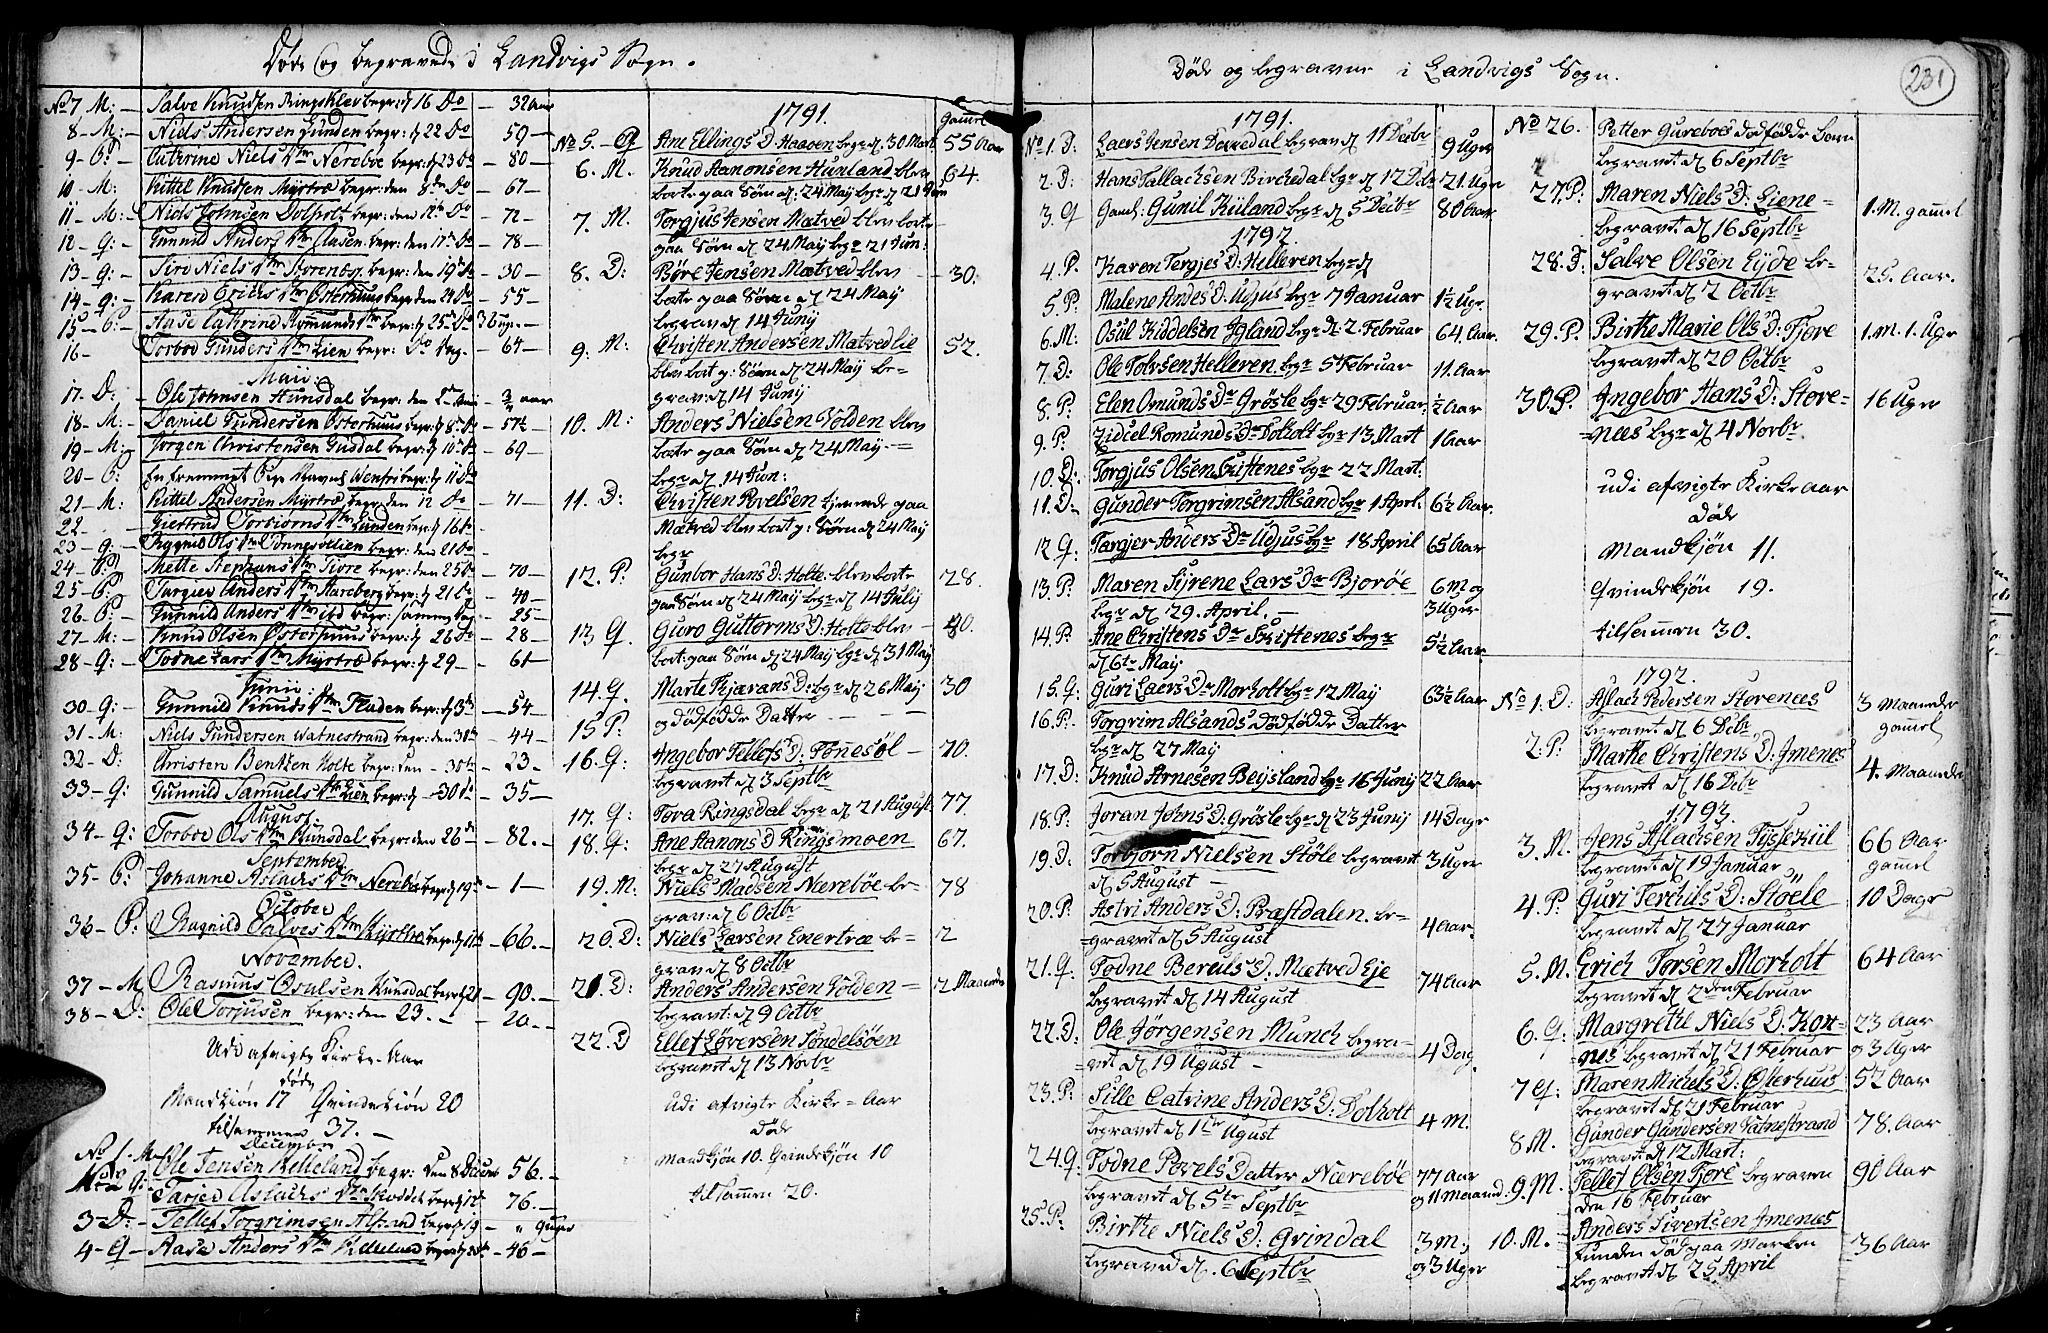 Døde og begravede i Landvigs Sogn.
No 7 M: Salve Knudsen Ringskler begr: d 16 Do 32 aar
8 - M: - Niels Andersen Lunden begr: d 22 Do 59
9 - P: - Cathrine Niels Dtr Nerebøe begr: d 23 Do 80
10 - M: Kittel Knudsen Myrtræ begr: den 8de Do 67
11 - M: Niels Johnsen Dolholt begr: den 12te Do 72
12 - q: - Gunnild Anders Dtr Aasen begr: den 17de Do 78
13 - q: - Siro Niels Dtr begr: den 19de Do 30
14 - q: - Karen Erichs Dtr Østerhuus begr: den 24 Do 55
15 - P: - Aase Cathrine Romunds Dtr begr: d 25de Do 3 ugr.
16 - Torboe Gunders Dtr Lien begr: Do Dag 64
Maii.
17. D: Ole Johnsen Hunsdal begr: den
18 - M: Daniel Gundersen Østerhuus begr: d 8de Do 57½
19 - M: Jørgen Christensen Guddal begr: d 10de Do 69
20 - P: En fremmet begr: d 11 Do
21 - M: Kittel Andersen Myrtræ begr: den 12 Do 71
22 Giertrud Torbiørns Dtr Lunden begr: d 16 Do
23 - q: Ragnild Ols Dtr begr: den 21 Do
24 - P: Mette Stephans Dtr Fiøre begr: den 25 Do 70
25 - P: Targier Anders Dtr Hareberg begr: d 21 Do 40
26. P: Gunnild Anders Dtr ibd begr: samme dag 25
27 - M: Knud Olsen Østerhuus begr: d 26 Do 28
28 - q: Todne Lars Dtr Myrtræ begr: d 29 61
Junii:
30 - q: Gunnild Knuds Dtr Fladen begr: d 3de 54
31 - M: Niels Gundersen Watnestrand begr: den 30te 44
32 - D: Christen Bentsen Holte begr: den 30te 23
33 - q: Gunnild Samuels Dtr Lien begr: d 30 Do 35
August.
34 - q: Torboe Ols Dtr Hunsdal begr: den 26de 82
September
35 - P: Johanne Aslachs Dtr Nerebøe begr: d 19de 1
October
36 - P. Ragnild Salves Dtr Myrtræ begr: d 11te 66
November.
37 - M Rasmus Osulsen Hunsdal begr: d 21 90
38 - D: Ole Torjusen begr: den 23. 20
Udi afvigte Kirke-Aar
døde
Mandkiøn 17 Qvindekiøn 20
tilsammen 37.
Decembr
No 1. M Ole Jensen Kelleland begr: den 8 Decembr 56
No 2 q: Tarjer Aslachs Dtr begr: d 12te 76
3 - D: - Tellef Torgrimsen Alsand begr: d 19 uger
4 - q - Aase Anders Dtr Kelleland begr: d 30te 46
1791. Gamel
No 5. q Ane Ellings D. Haaven begr d 30 Mart. 55 Aar
6. M. Knud Aanonsen Hurland blev 64.
borte paa Søen d: 24 May begr d 21 Jun
7. M: Torgjus Jensen Mætved blev borte
paa Søen d 24 May begr 21 Jun:
8. D: Børe Jensen Mætved blev 30.
borte paa Søen d 24 May
begrav d 14 Junij
9. M: Christen Andersen Mætved Eie 52.
blev bort p: Søen d 24 May be-
grav: d 14 Junij
10. M: Anders Nielsen Volden blev
borte paa Søen d 24 May
begr d 14 Jun:
11. D: Christen Povelsen tjenende paa
Mætved blev bort p: Søen d 24 May
begr
12. P: Gunbor Hans D: Holte blev borte 28.
paa Søen d 24 May begr d 14 Julij
13 q. Guro Guttorms D: Holte blev 40.
bort: paa Søen d 24 May begr d 31 May
14. q. Marte Kjærans D: begr d 26 May 30
15 P: og dødfødde Datter
16. q: Angebor Tellefs D: Tønnesøl 70.
begravet d 3 Septbr
17. q: Tova Ringsdal begr d 21 August 77
18. q: Ane Aanons D Ringsmoen 67.
begr d 27 August
19. M: Niels Madsen Nærebøe be- 78
grav: d 6 Octbr
20. D: Niels Larsen Enertræ be= 2
grav d 8 Octbr
21. D: Anders Andersen Volden 2 Maaneder
begravet: d 9 Octbr
22. D Ellef Løversen Søndelsøen
begravet d 13 Novbr
udi afvigte Kirke=Aar
døde
Mandkjøn 10. Qvindekjøn 10
tilsammen 20.
Døde og begravne i Landvigs Sogn.
231
1791.
No 1. D: Laers Jensen Dovredal begrav d 11 Decbr 9 Uger
2. D: Hans Tallachsen Birkedal bgr d 12 Decbr 21. Uger
3. q Gaml: Gunil Kyland begr d 5 Decbr 80 Aar
1792.
4. P. Karen Tergjes D: Helleren begr d
5. P. Malene Andes D: Ugjus begr 7 Januar 1½ Ugr.
6. M: Osuil Kiddelsen Jgland begr d. 2. Februar 64. Aar.
7. D: Ole Tolvsen Helleren begr 5t Februar 11. Aar
8. P: Elen Omunds Dr Grøsle bgr 29 Februar ½ Aar
9. P: Zidcel Romunds Dr Dolholt bgr 13 Mart 1 Aar
10. D: Torgjus Olsen Skiftenes bgr 22 Mart.
11. D: Gunder Torgrimsen Alsand bgr 1 Aprl. 6½ Aar.
12 q. Targjer Anders Dr Ugjus bgr 18 April 65 Aar
13. P: Maren Syrene Lars Dr Bjorøe 6 M og
begr d 29. April. 3 Uger
14. P: Ane Christens Dr Skiftenes begr 5½ Aar
d 6te May
15. q: Guri Laers Dr Morholt bgr 12 May 63½ Aar
16. P: Torgrim Alsands dødfødde Datter
bgr d 27 May
17. D: Knud Arnesen Beijsland bgr 16 Junij 22 Aar
18. P: Joran Johns D: Grøsle bgr d 23 Junij 14 Dage
19. D: Torbjørn Nielsen Støle begravet 3 Uger
d 5 August
20. P: Astri Anders D: Præstdalen. be= 4 Aar.
=gravet d 5 August
21. q: Todne Beruls D. Mætved Eje 74 Aar
begravet d 14 August
22. D: Ole Jørgensen Munch begra- 4 Dag
=vet d 19 Ugust
23. P: Sille Catrine Anders D: Dolholt 4 M.
begravet d 1ste Ugust
24. q: Todne Povels Datter Nærebøe 77 Aar
begravet d 5te Septbr og 11 Maaned.
25. P: Birthe Niels D: Grindal 3 M:
begraved d. 6 Septbr og 3 Uger
No 26. Petter Gureboes dødfødde barn
begravet d 6 Septbr
27. P: Maren Niels D: Eiene= 1. M. gamel
begravet d 16 Septbr
28. D: Salve Olsen Eyde be- 25. Aar.
gravet d 2 Octbr
29. P. Birthe Marie Ols D: Fjøre 1. M. 1. Ugr
begravet d 20 Octbr
30. P. Angebor Hans D: Store- 16 Uger
=nees begr d 4 Novbr.
udi afvigte Kirke aar
døde
Mandkjøn 11.
Qvindekjøn 19.
tilsammen 30.
1792.
No 1. D: Aslach Pedersen Storenees 3 Maaneder
begravet d 6 Decbr gamel
2. P: Marthe Christens D: Jmenes 4. Maaneder
begravet d 16 Decbr
1793.
3. M. Jens Aslachsen Tysseküil 66 Aar
begravet d 19 Januar gamel
4. P: Guri Terchils D: Støele 10 Dage
begravet d 27 Januar
5. M. Erich Torsen Morholt 64 Aar
begravet d 2den Februar
6. q: Margrethe Niels D: Kon- 23 Aar
nes begravet d 21 Februar og 3 Uger
7 q: Maren Michels D: Østerhuus 52 Aar
begravet d 21 Februar
8 M. Gunder Gundersen Vatnestrand 78. Aar
begravet d 12 Mart:
9. M. Tellef Olsen Fjøre begraven 90 Aar
den 16 Februar
10. M. Anders Sivertsen Jmenes 36 Aar
funden død paa Marken
begravet d 25 April